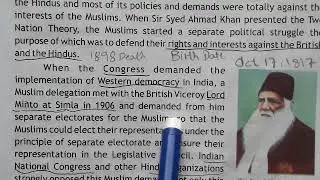 the Hindus and most of its policies and demands were totally against the
interests of the Muslims. When Sir Syed Ahmad Khan presented the Two
Nation Theory, the Muslims started a separate political struggle the
purpose of which was to defend their rights and interests against the British
and the Hindus. 1898 Death Birth Date
Oct 17, 1817
When the Congress demanded the
implementation of Western democracy in India, a
Muslim delegation met with the British Viceroy Lord
Minto at Simla in 1906 and demanded from him
separate electorates for the Muslims so that the
Muslims could elect their representatives under the
principle of separate electorate and ensure their
representation in the Legislative Council. Indian
National Congress and other Hindu organizations
strongly opposed this Muslim demand not only this